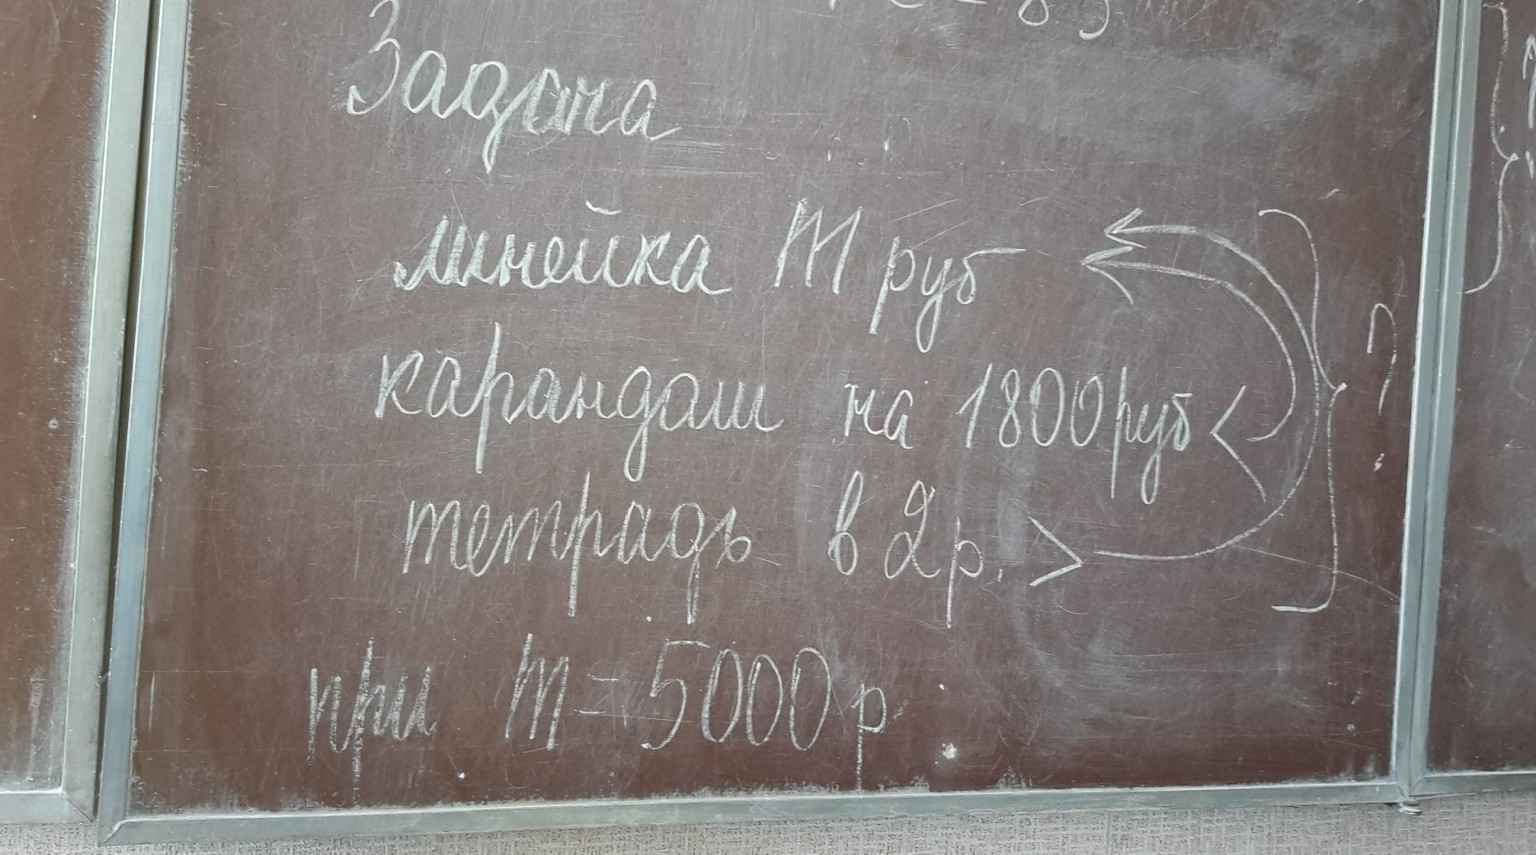 Задача
линейка m руб
карандаш на 1800 руб <
тетрадь в 2 р. >
?
при m = 5000 р